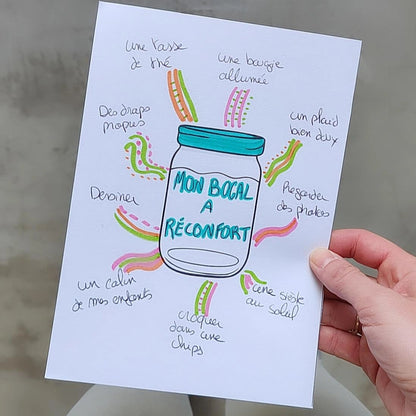 une tasse
de thé
une bougie
allumée
Des draps
propres
un plaid
bien doux
MON BOCAL
A
RÉCONFORT
Dessiner
Regarder
des photos
un calin
de mes enfants
une sieste
au soleil
croquer
dans une
chips